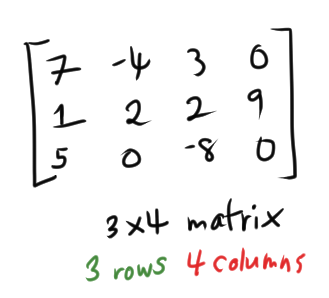 7 -4 3 0
1 2 2 9
5 0 -8 0
3x4 matrix
3 rows 4 columns